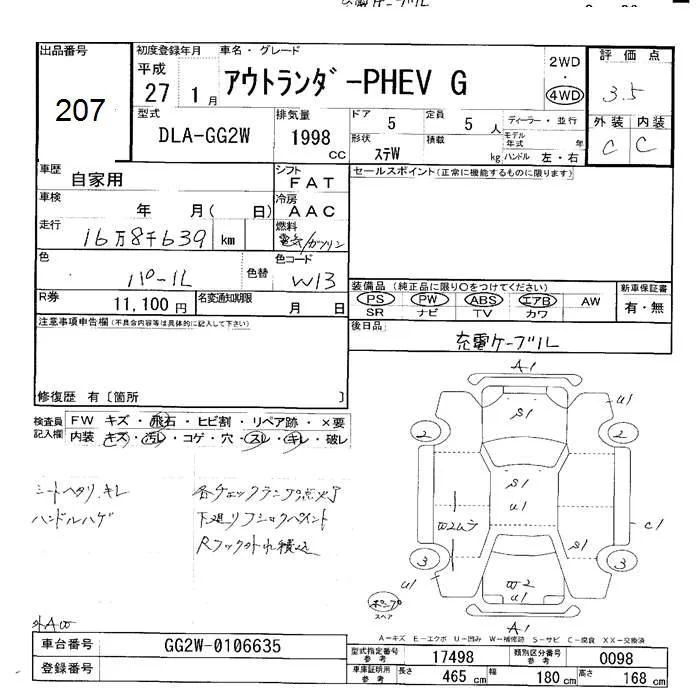 出品番号
207
初度登録年月
平成
27 1月
車名・グレード
アウトランダ-PHEV G
2WD
・
4WD
評価点
3.5
外装 内装
C C
型式
DLA-GG2W
排気量
1998
CC
ドア 5
定員 5 人
ディーラー・並行
形状 ステW
積載 kg
モデル年式 年
ハンドル 左・右
車歴 自家用
シフト FAT
車検 年 月( 日)
冷房 AAC
走行 16万8千639 km
燃料 電気/ガソリン
色 パール
色替
色コード W13
R券 11,100円
名変通知期限 月 日
セールスポイント(正常に機能するものに限ります)
装備品(純正品に限り○をつけてください)
PS PW ABS エアB AW
SR ナビ TV カワ
新車保証書
有・無
後日品
充電ケーブル
注意事項申告欄(不具合内容等は具体的に記入して下さい)
修復歴 有〔箇所 〕
検査員記入欄
FW キズ・飛石・ヒビ割・リペア跡・×要
内装 キズ・汚レ・コゲ・穴・スレ・キレ・破レ
シートヘタリ.キレ
ハンドルハゲ
各チェックランプ点灯
下廻リフショックペイント
Rフック外れ積込
A1
S1
U1
2
2
S1
U1
W2ムラ
C1
S1
3
3
U1
W2
U1
ポンプ
スペア
A1
A-キズ E-エクボ U-凹み W-補修跡 S-サビ C-腐食 XX-交換済
車台番号 GG2W-0106635
登録番号
型式指定番号 参考 17498
類別区分番号 参考 0098
車庫証明用 参考
長さ 465 cm
幅 180 cm
高さ 168 cm